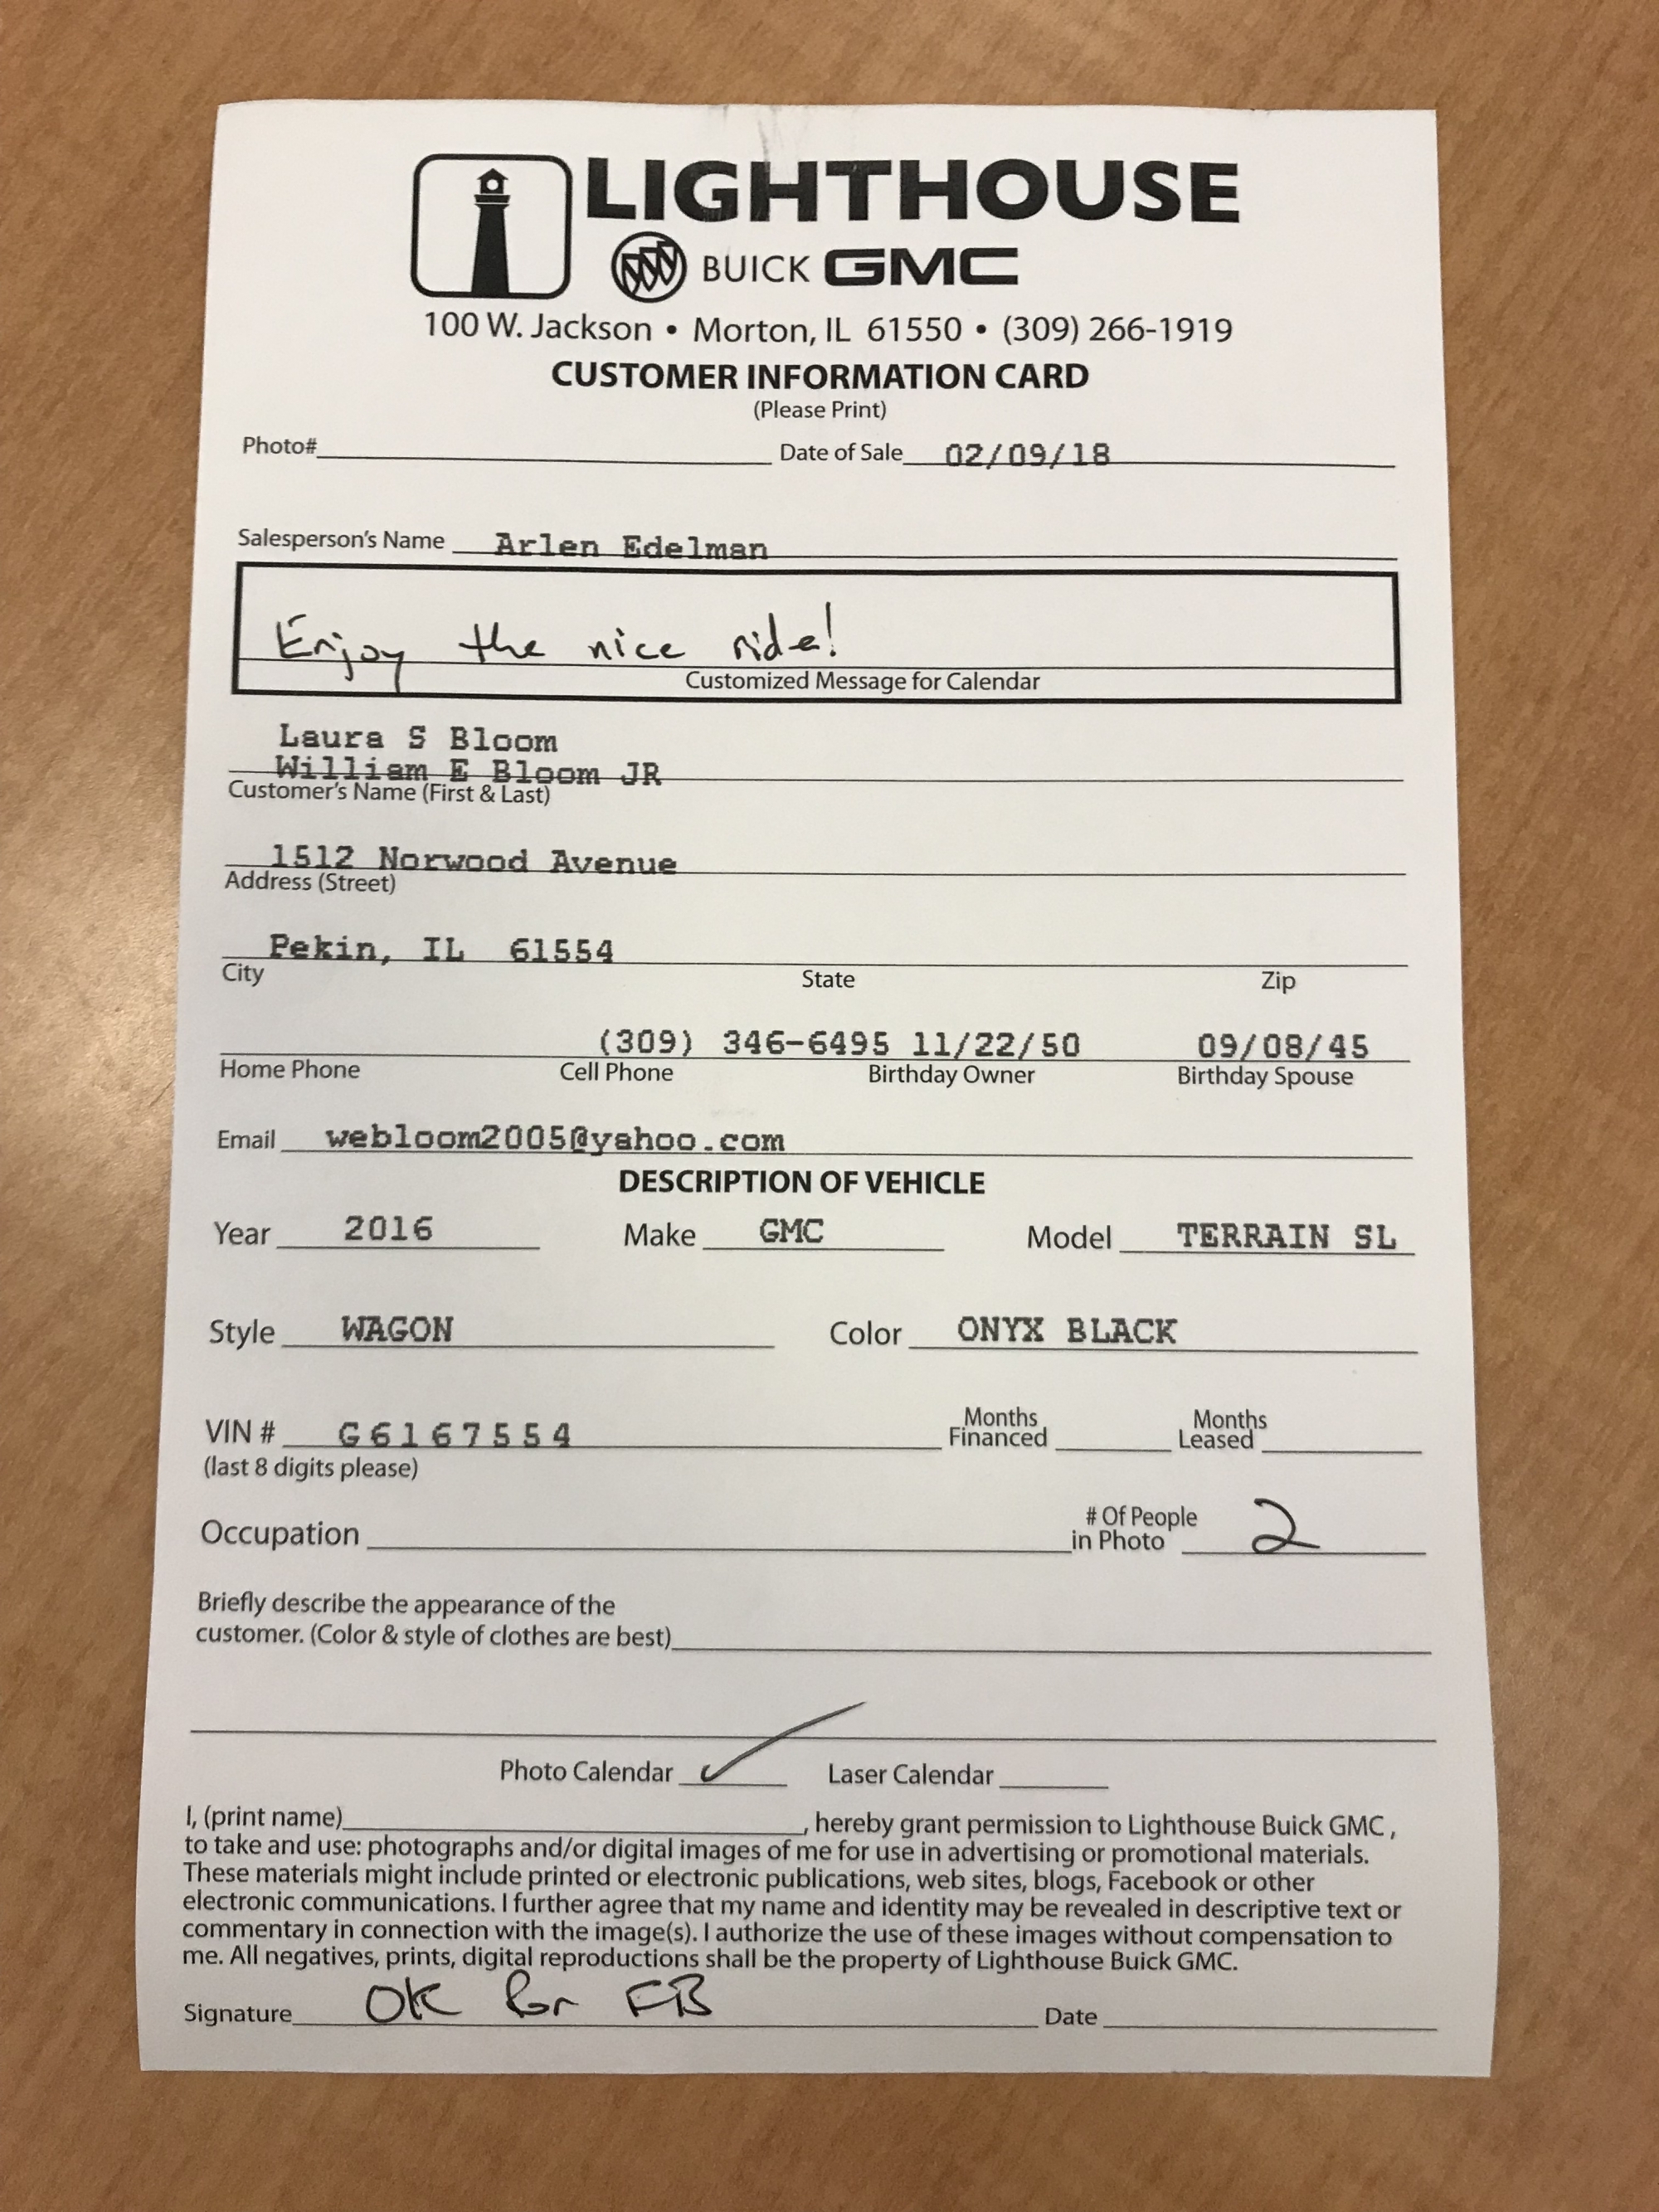 LIGHTHOUSE
BUICK GMC
100 W. Jackson • Morton, IL 61550 • (309) 266-1919
CUSTOMER INFORMATION CARD
(Please Print)
Photo# Date of Sale 02/09/18
Salesperson's Name Arlen Edelman
Enjoy the nice ride!
Customized Message for Calendar
Laura S Bloom
William E Bloom JR
Customer's Name (First & Last)
1512 Norwood Avenue
Address (Street)
Pekin, IL 61554
City State Zip
(309) 346-6495 11/22/50 09/08/45
Home Phone Cell Phone Birthday Owner Birthday Spouse
Email webloom2005@yahoo.com
DESCRIPTION OF VEHICLE
Year 2016 Make GMC Model TERRAIN SL
Style WAGON Color ONYX BLACK
VIN # G6167554 Months Financed Months Leased
(last 8 digits please)
Occupation # Of People in Photo 2
Briefly describe the appearance of the
customer. (Color & style of clothes are best)
Photo Calendar ✓ Laser Calendar
I, (print name) , hereby grant permission to Lighthouse Buick GMC,
to take and use: photographs and/or digital images of me for use in advertising or promotional materials.
These materials might include printed or electronic publications, web sites, blogs, Facebook or other
electronic communications. I further agree that my name and identity may be revealed in descriptive text or
commentary in connection with the image(s). I authorize the use of these images without compensation to
me. All negatives, prints, digital reproductions shall be the property of Lighthouse Buick GMC.
Signature OK for FB Date